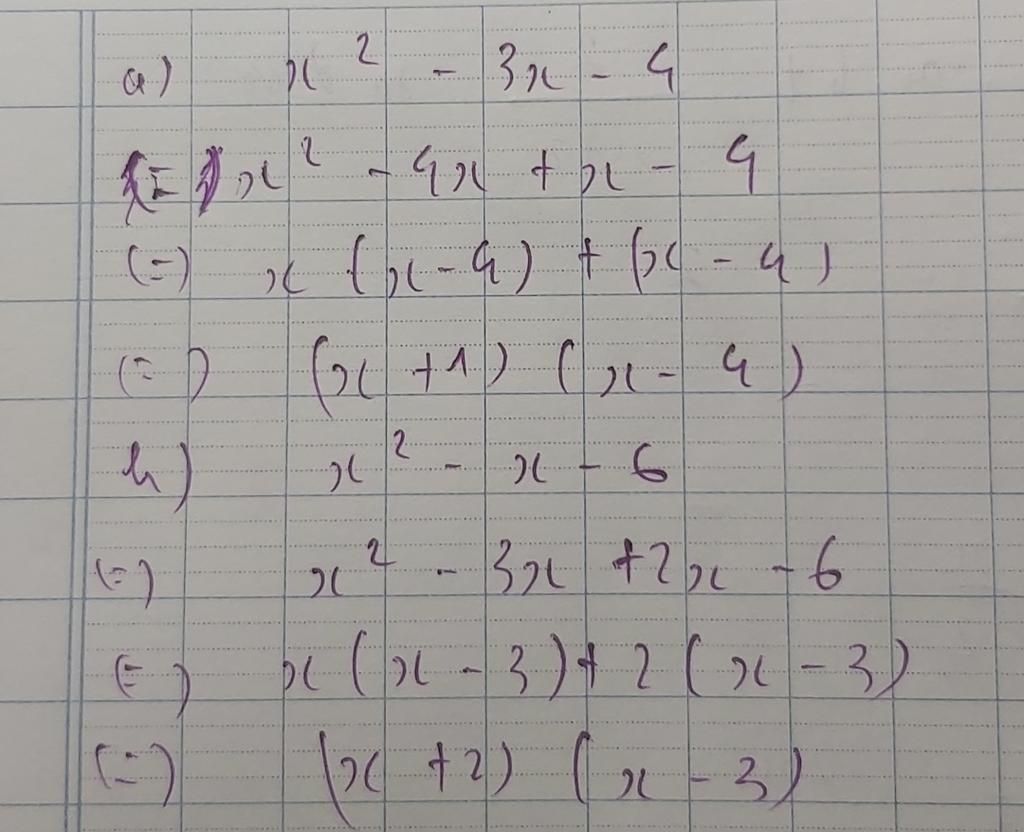 a) x² - 3x - 4
(=) x² - 4x + x - 4
(=) x (x - 4) + (x - 4)
(=) (x + 1) (x - 4)
h) x² - x - 6
(=) x² - 3x + 2x - 6
(=) x (x - 3) + 2 (x - 3)
(=) (x + 2) (x - 3)